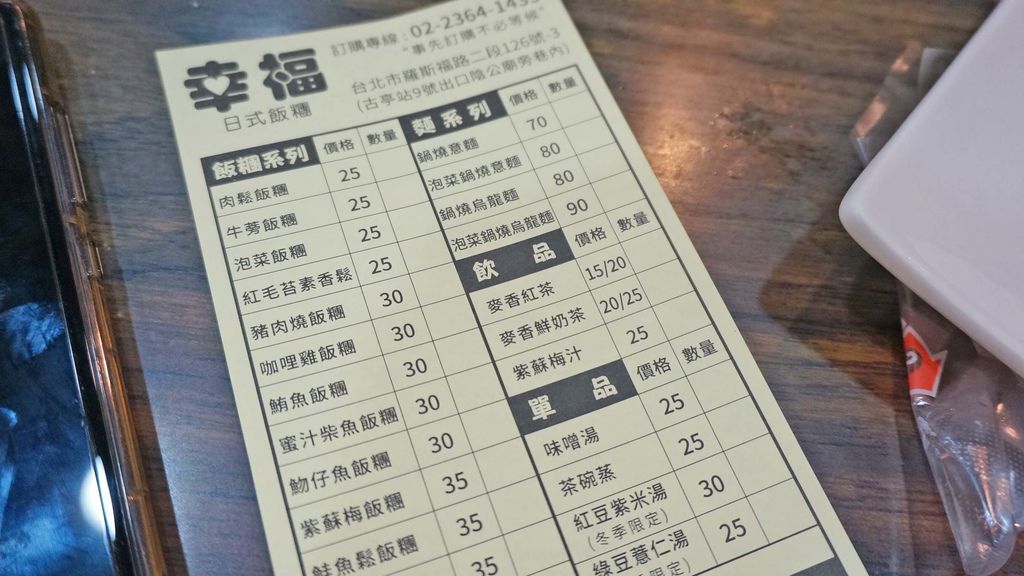 幸福
日式飯糰
訂購專線：02-2364-
"事先訂購不必等候"
台北市羅斯福路二段126號-3
(古亭站9號出口陰公廟旁巷內)
飯糰系列 價格 數量
肉鬆飯糰 25
牛蒡飯糰 25
泡菜飯糰 25
紅毛苔素香鬆 25
豬肉燒飯糰 30
咖哩雞飯糰 30
鮪魚飯糰 30
蜜汁柴魚飯糰 30
魩仔魚飯糰 30
紫蘇梅飯糰 35
鮭魚鬆飯糰 35
35
麵系列 價格 數量
鍋燒意麵 70
泡菜鍋燒意麵 80
鍋燒烏龍麵 80
泡菜鍋燒烏龍麵 90
飲品 價格 數量
麥香紅茶 15/20
麥香鮮奶茶 20/25
紫蘇梅汁 25
單品 價格 數量
味噌湯 25
茶碗蒸 25
紅豆紫米湯 30
(冬季限定)
綠豆薏仁湯 25
限定)